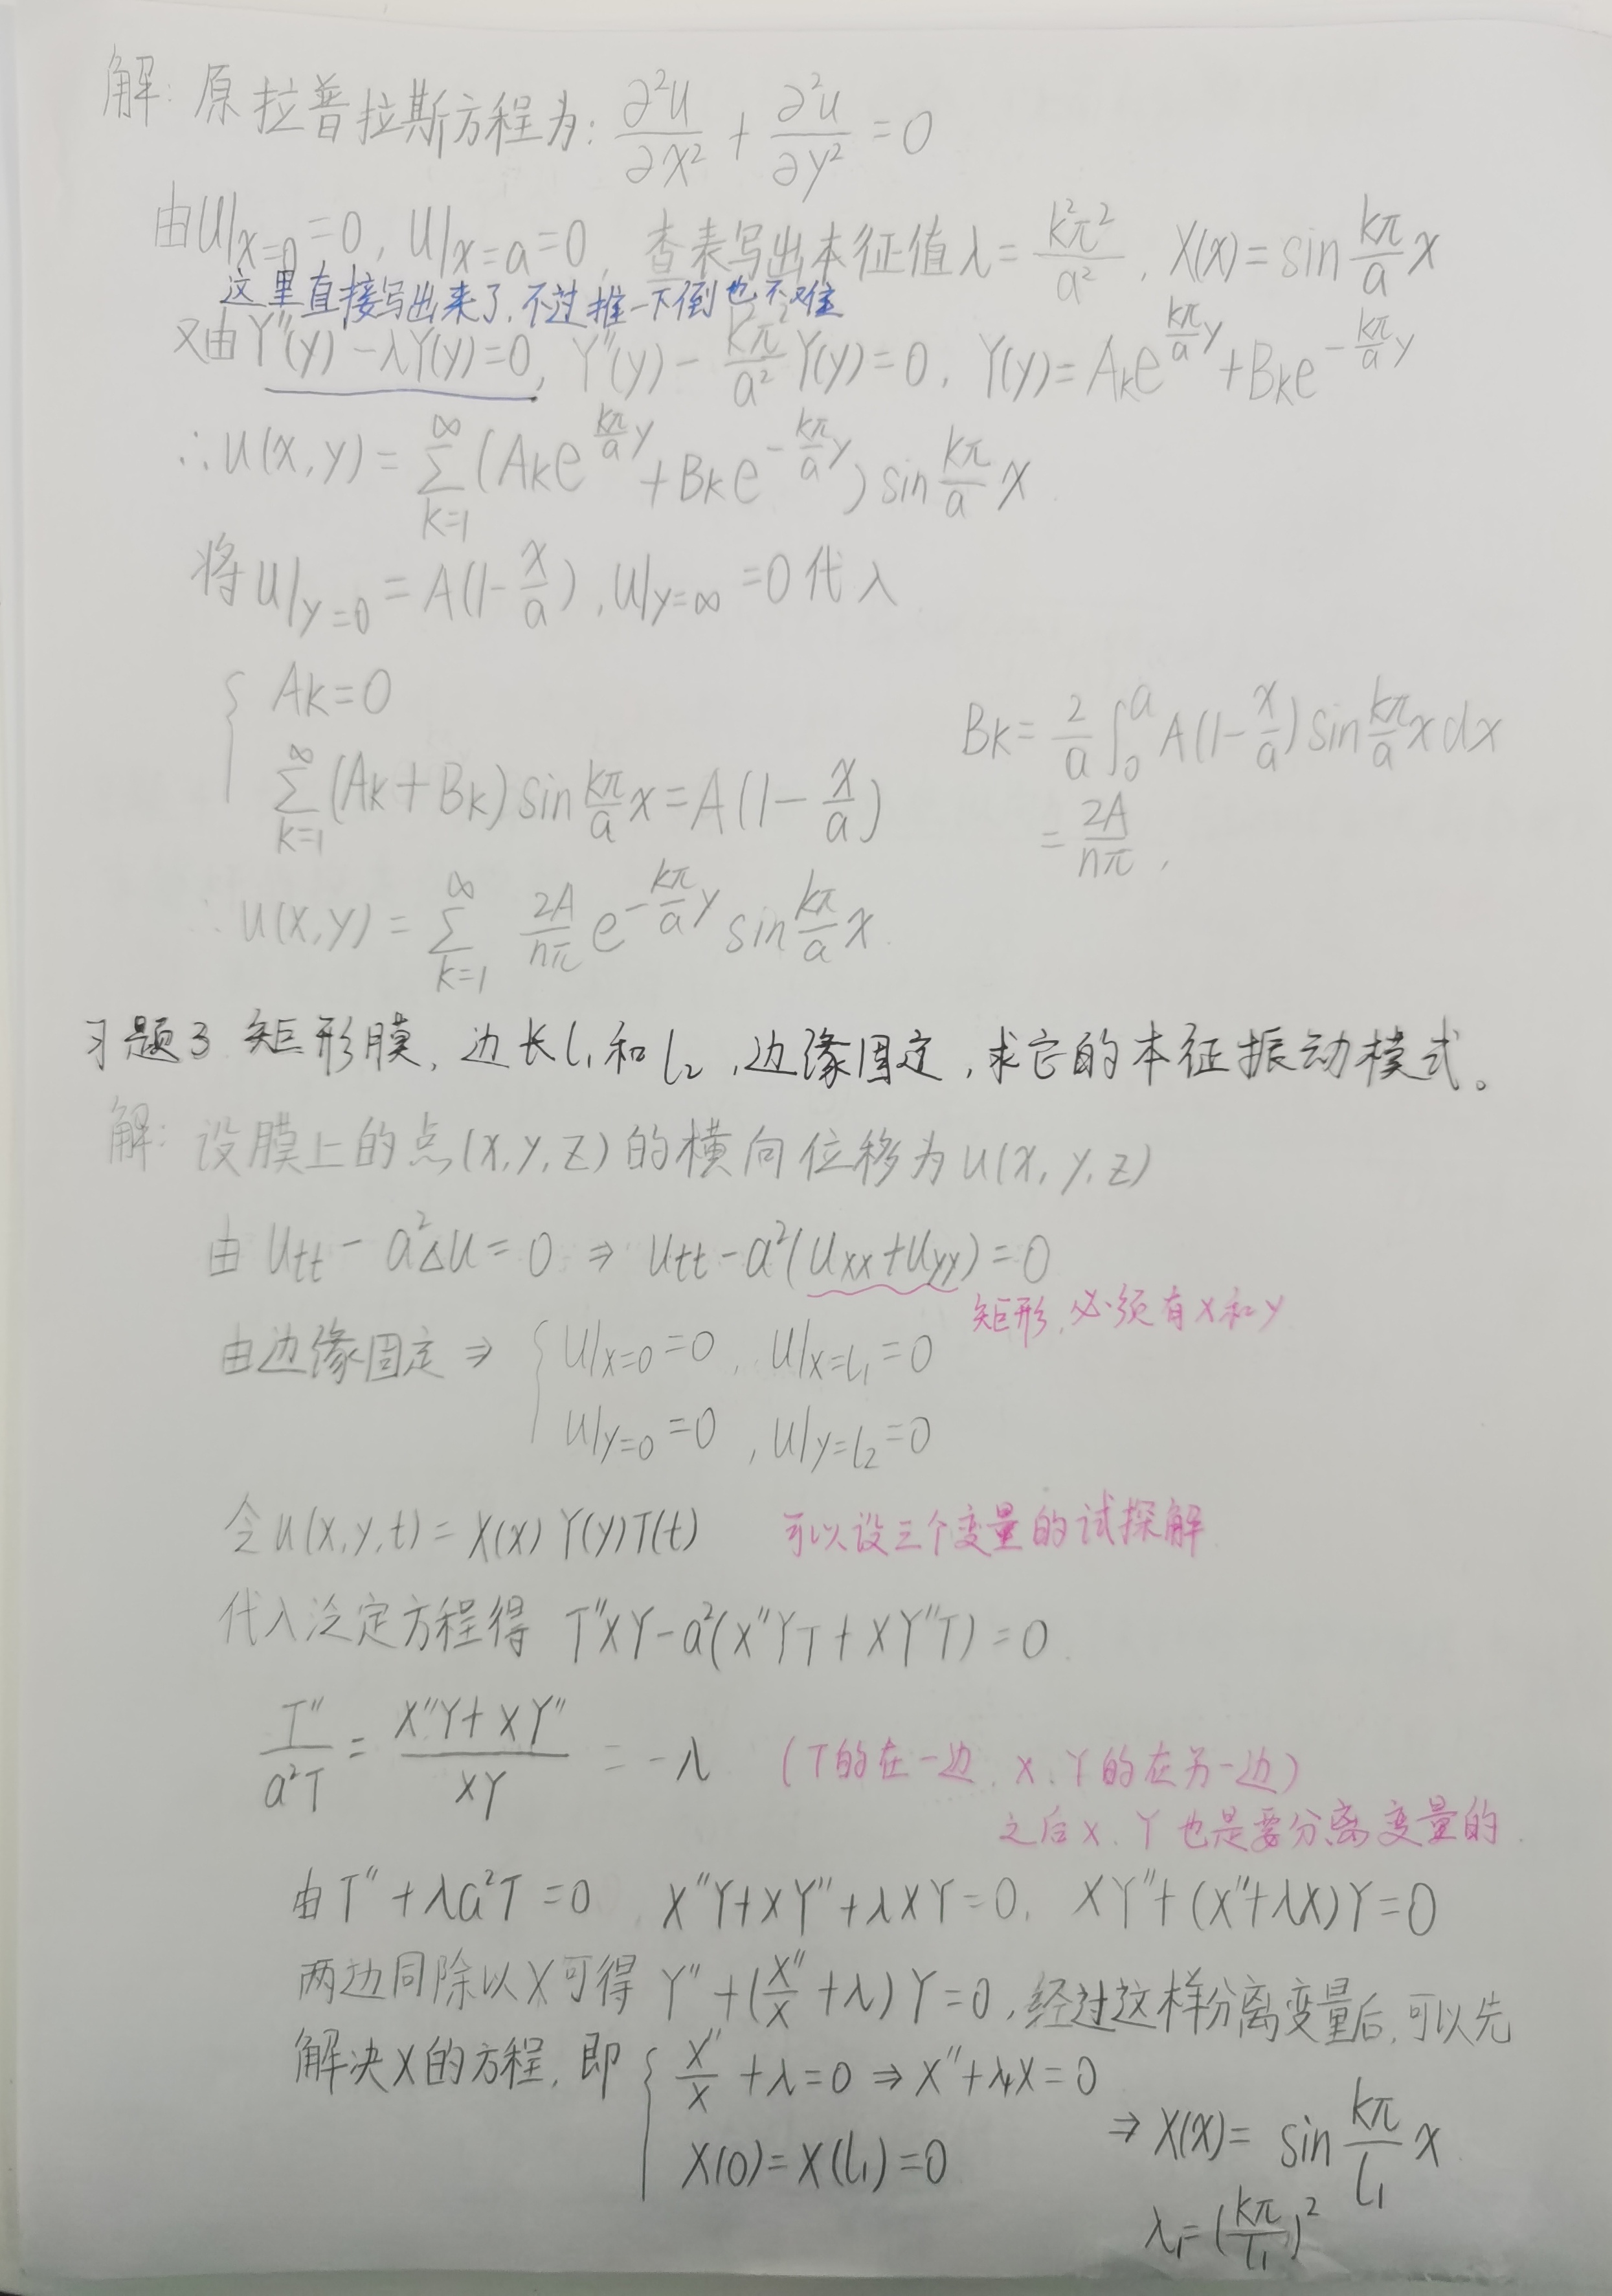 解: 原拉普拉斯方程为: ∂²u/∂x² + ∂²u/∂y² = 0
由u|x=0 = 0, u|x=a = 0, 查表写出本征值λ = k²π²/a², X(x) = sin kπ/a x
这里直接写出来了,不过推一下倒也不难
又由Y''(y) - λY(y) = 0, Y''(y) - k²π²/a² Y(y) = 0, Y(y) = Ak e^(kπ/a y) + Bk e^(-kπ/a y)
∴ u(x,y) = ∑(k=1→∞) (Ak e^(kπ/a y) + Bk e^(-kπ/a y)) sin kπ/a x
将u|y=0 = A(1 - x/a), u|y=∞ = 0 代入
{ Ak = 0
∑(k=1→∞) (Ak + Bk) sin kπ/a x = A(1 - x/a)
Bk = 2/a ∫₀ᵃ A(1 - x/a) sin kπ/a x dx
= 2A/nπ,
∴ u(x,y) = ∑(k=1→∞) 2A/nπ e^(-kπ/a y) sin kπ/a x.
习题3 矩形膜, 边长l₁和l₂, 边缘固定, 求它的本征振动模式。
解: 设膜上的点(x, y, z)的横向位移为u(x, y, z)
由 utt - a²Δu = 0 ⇒ utt - a²(uxx + uyy) = 0
矩形, 必须有x和y
由边缘固定 ⇒ { u|x=0 = 0, u|x=l₁ = 0
u|y=0 = 0, u|y=l₂ = 0
令u(x, y, t) = X(x) Y(y) T(t) 可以设三个变量的试探解
代入泛定方程得 T''XY - a²(X''YT + XY''T) = 0.
T''/a²T = (X''Y + XY'')/XY = -λ (T的在一边, X、Y的在另一边)
之后X、Y也是要分离变量的.
由T'' + λa²T = 0, X''Y + XY'' + λXY = 0, XY'' + (X'' + λX)Y = 0
两边同除以X可得 Y'' + (X''/X + λ)Y = 0, 经过这样分离变量后, 可以先
解决X的方程, 即 { X''/X + λ = 0 ⇒ X'' + λ₁X = 0
X(0) = X(l₁) = 0
⇒ X(x) = sin kπ/l₁ x
λ₁ = (kπ/l₁)²